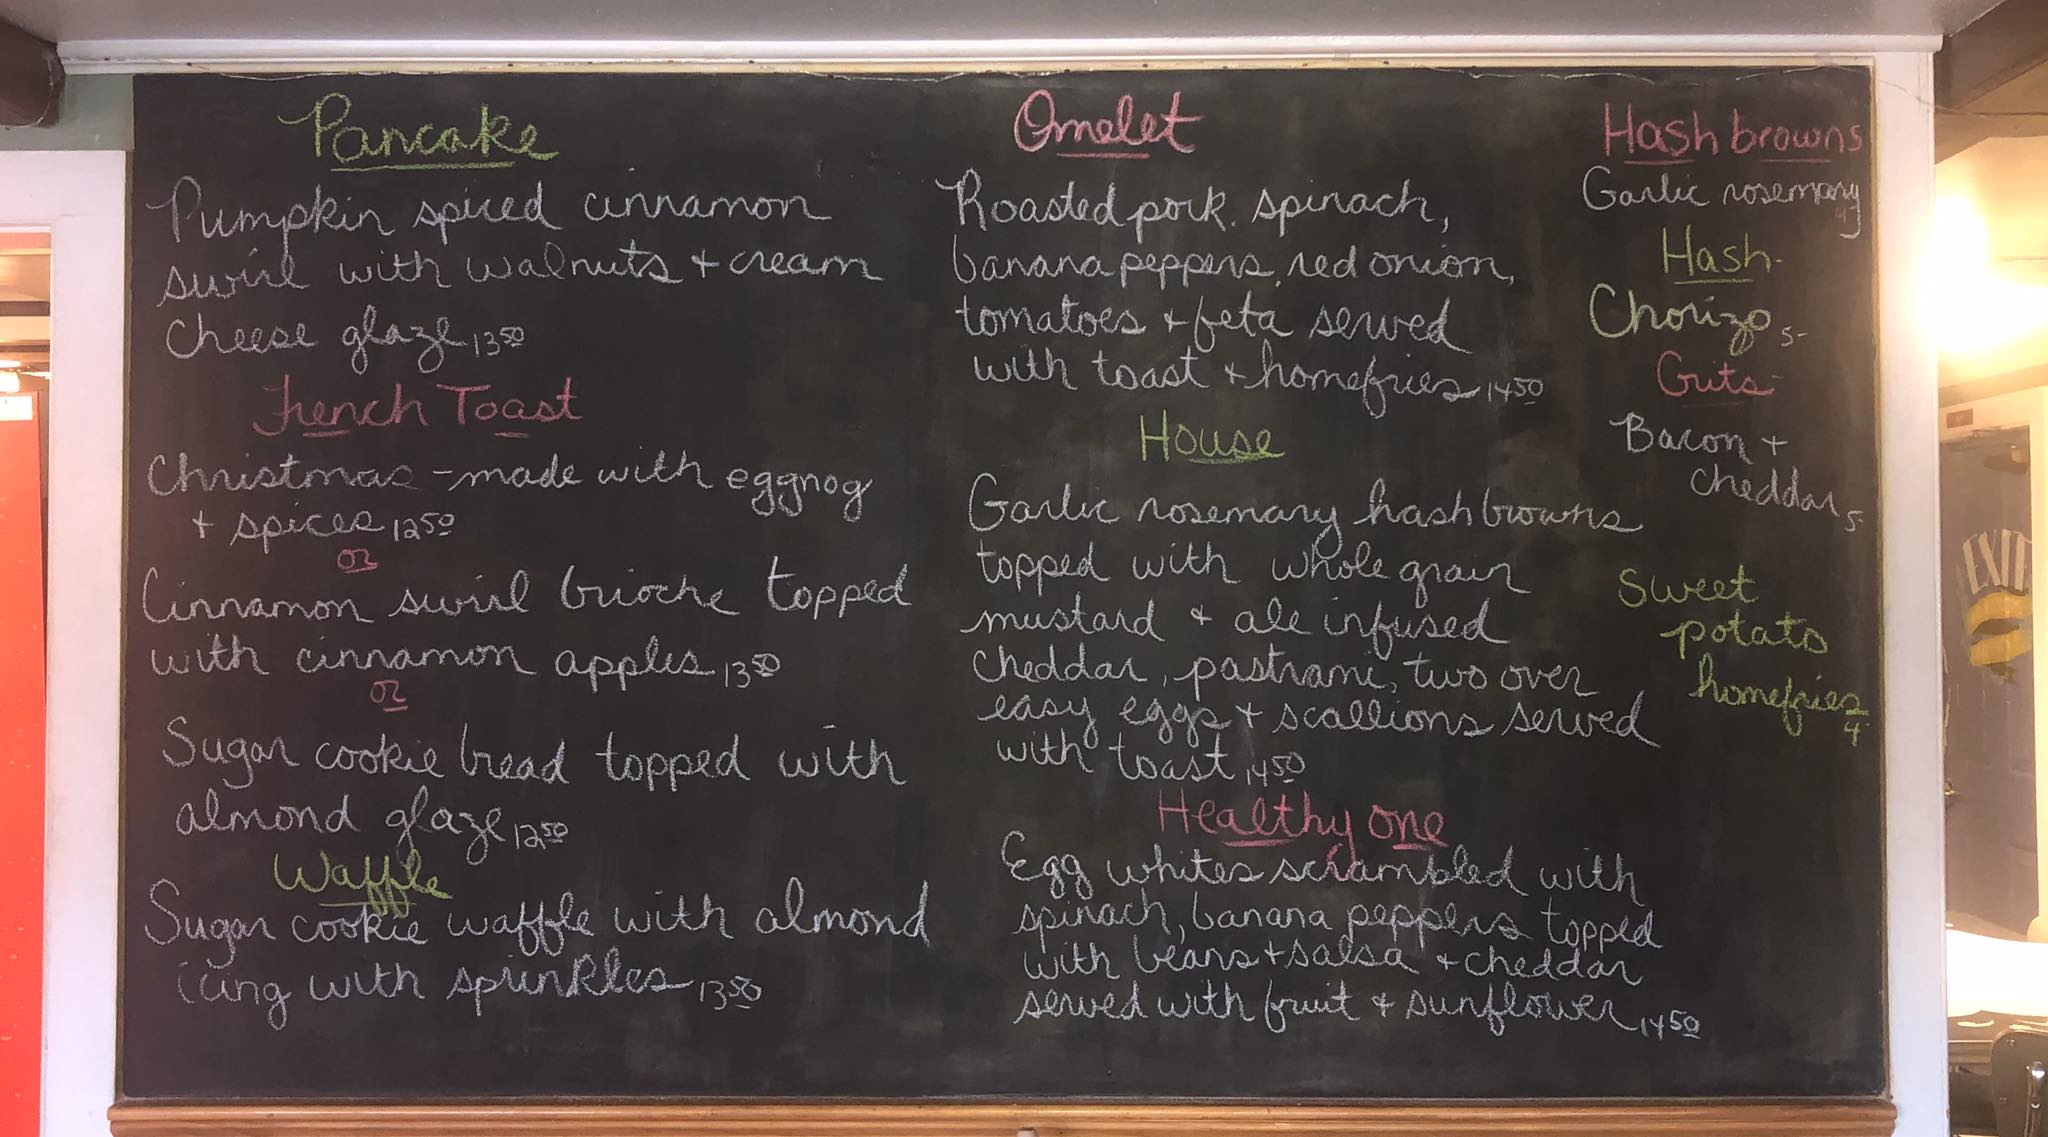 Pancake
Pumpkin spiced cinnamon
swirl with walnuts + cream
cheese glaze 13 50
French Toast
Christmas - made with eggnog
+ spices 12 50
or
Cinnamon swirl brioche topped
with cinnamon apples 13 50
or
Sugar cookie bread topped with
almond glaze 12 50
Waffle
Sugar cookie waffle with almond
icing with sprinkles 13 50
Omelet
Roasted pork. spinach,
banana peppers, red onion,
tomatoes + feta served
with toast + homefries 14 50
House
Garlic rosemary hashbrowns
topped with whole grain
mustard + ale infused
cheddar, pastrami, two over
easy eggs + scallions served
with toast 14 50
Healthy one
Egg whites scrambled with
spinach, banana peppers topped
with beans + salsa + cheddar
served with fruit + sunflower 14 50
Hash browns
Garlic rosemary
4-
Hash-
Chorizo 5-
Grits-
Bacon +
cheddar 5-
Sweet
potato
homefries
4-